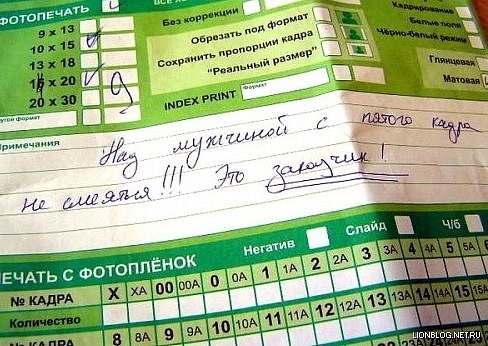 ФОТОПЕЧАТЬ
9 x 13
10 x 15
13 x 18
15 x 20
20 x 30
Другой формат
Без коррекции
Обрезать под формат
Сохранить пропорции кадра
"Реальный размер"
INDEX PRINT
Формат
Кадрирование
Белые поля
Чёрно-белый режим
Глянцевая
Матовая
Примечания
Над мужчиной с пятого кадра
не смеяться!!! Это заказчик!
ПЕЧАТЬ С ФОТОПЛЁНОК
Негатив
Слайд
Ч/б
№ КАДРА X XA 00 00A 0 0A 1 1A 2 2A 3 3A 4 4A 5 5A 6
Количество
№ КАДРА 8 8A 9 9A 10 10A 11 11A 12 12A 13 13A 14 14A 15 15A
LIONBLOG.NET.RU